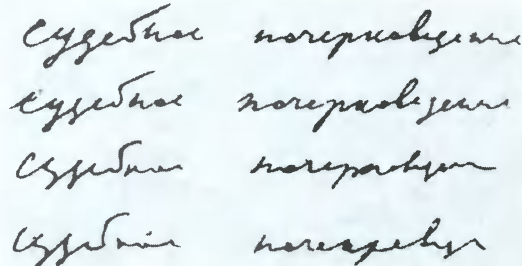 судебное почерковедение
судебное почерковедение
судебное почерковедение
судебное почерковед